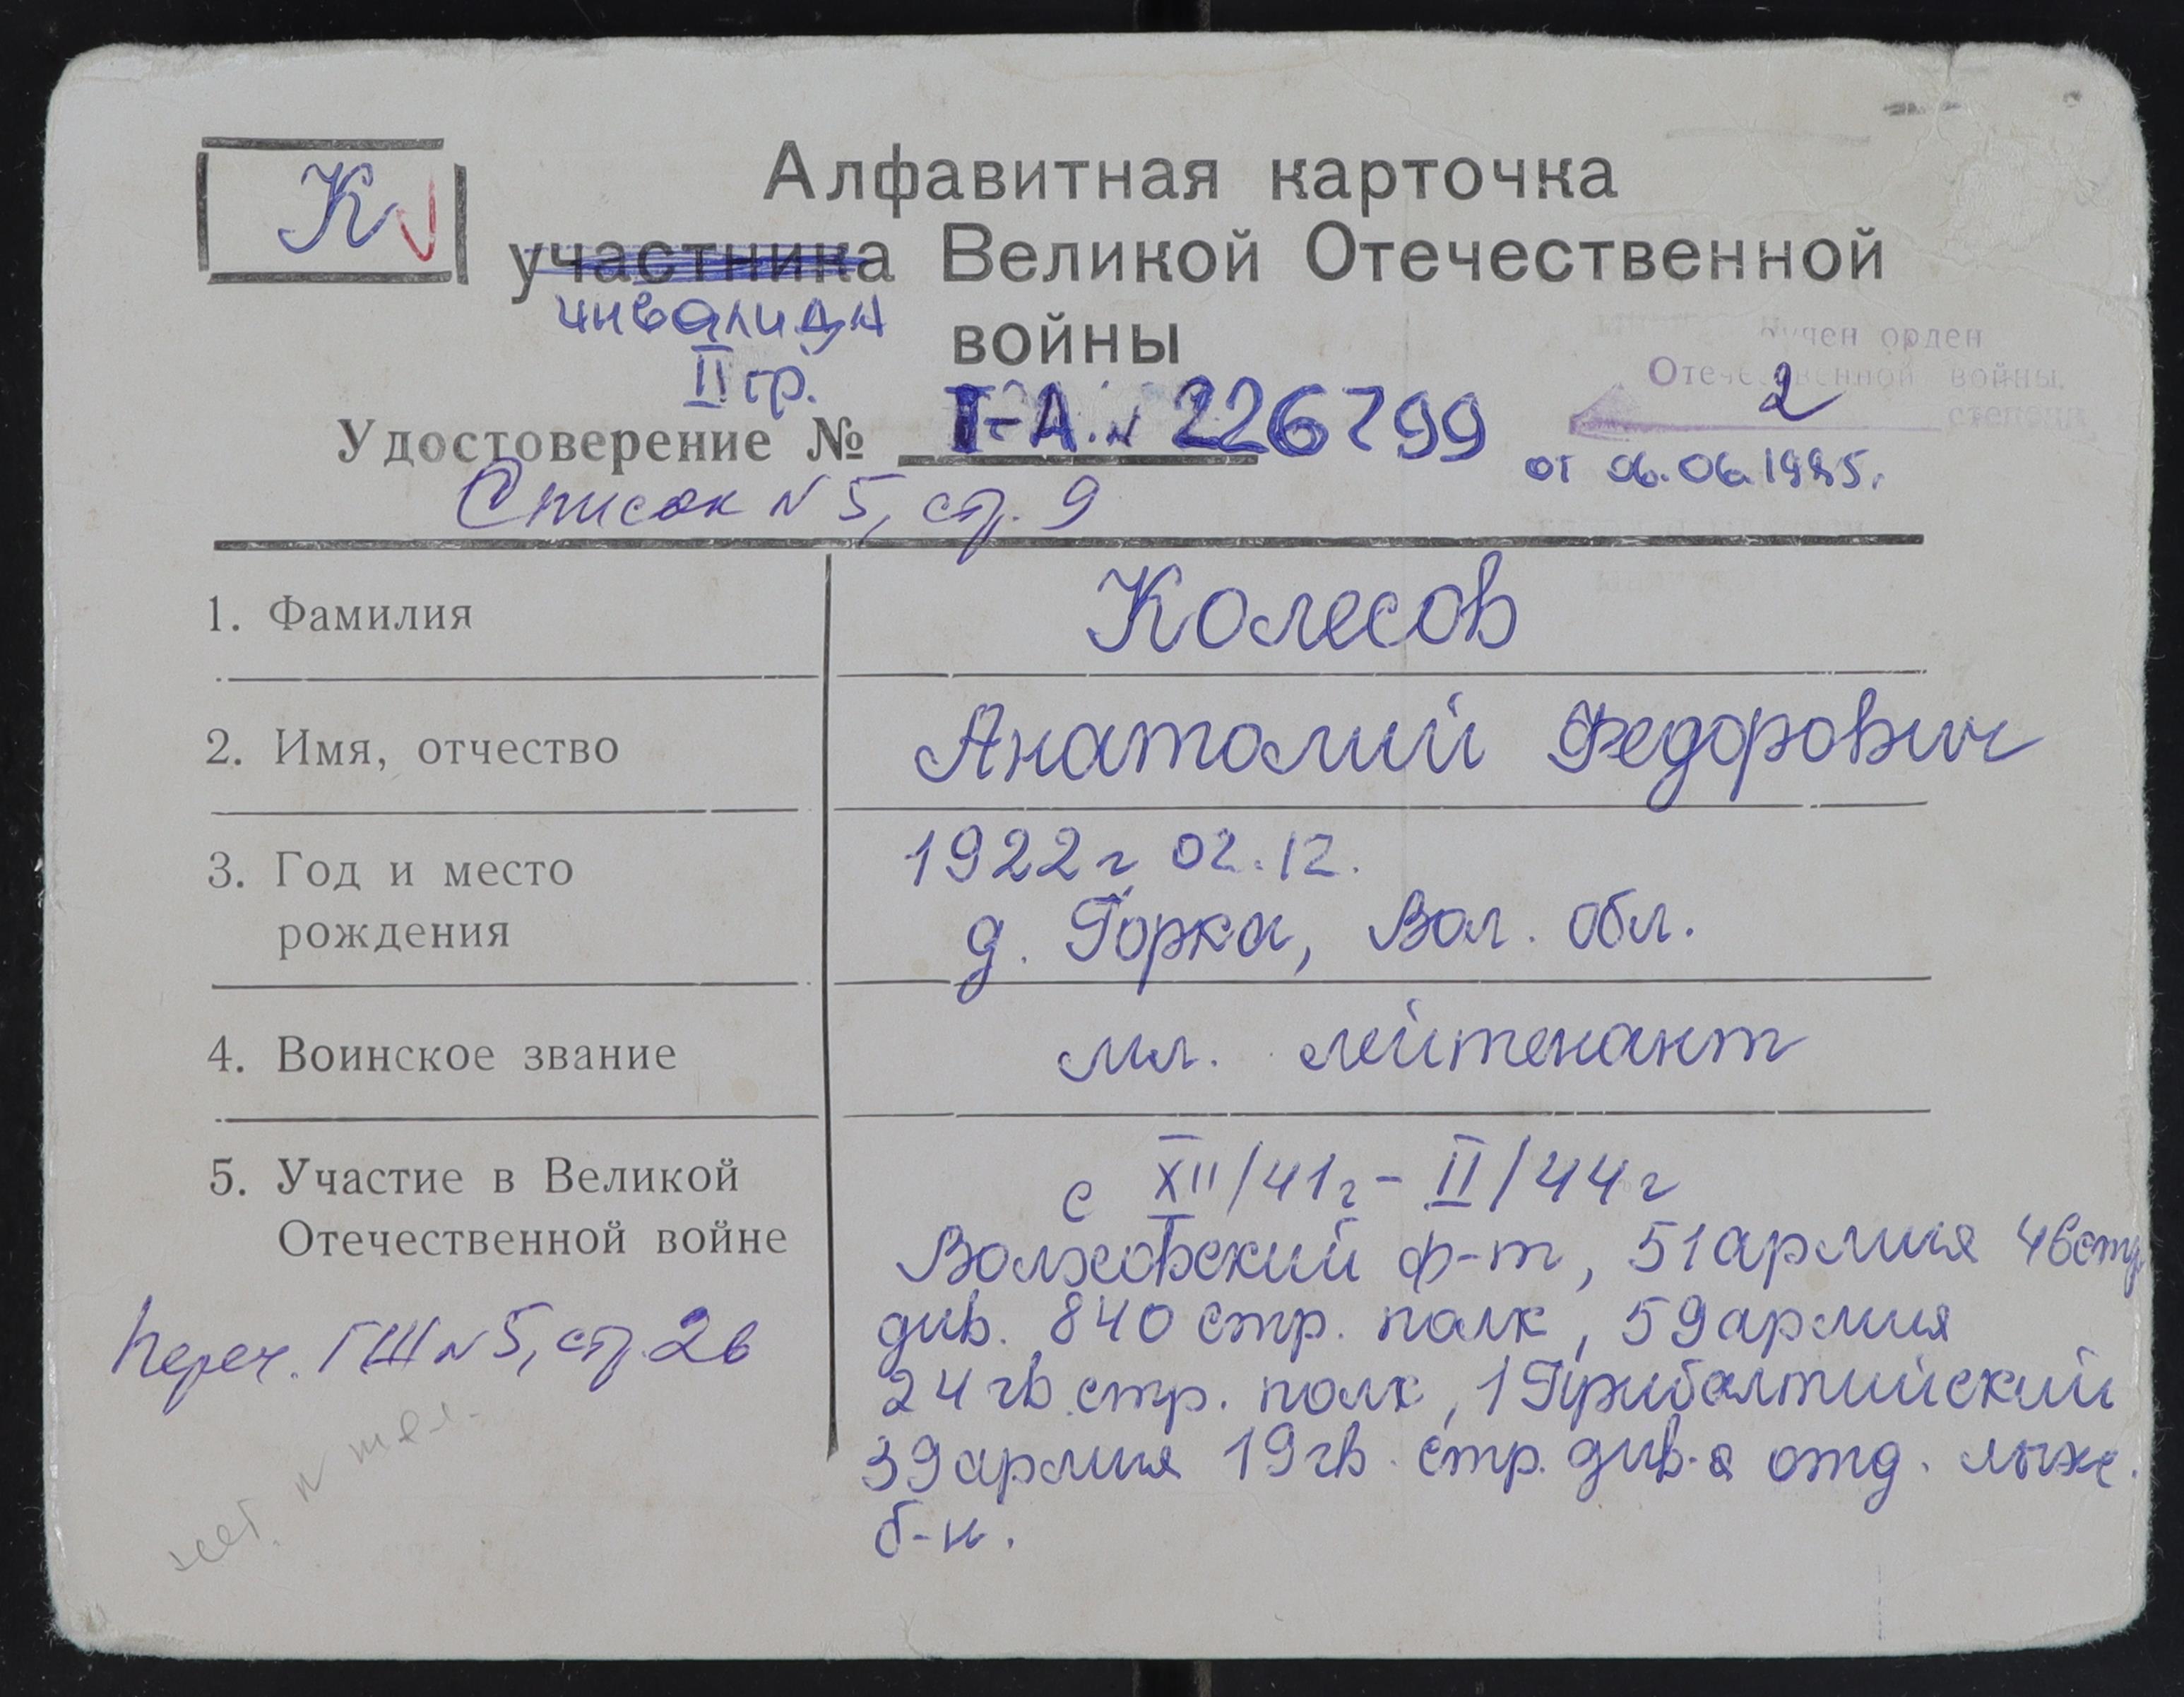 К
Алфавитная карточка
участника Великой Отечественной
инвалида
войны
II гр.
орден
Отечественной войны
2
степени
Удостоверение № Г-А № 226799
от 06.06.1985.
Список N 5, стр. 9
1. Фамилия
Колесов
2. Имя, отчество
Анатолий Федорович
3. Год и место
рождения
1922 г 02.12.
д. Горка, Вол. обл.
4. Воинское звание
мл. лейтенант
5. Участие в Великой
Отечественной войне
с XII/41г - II/44 г
Волховский ф-т, 51 армия 46 стр.
див. 840 стр. полк, 59 армия
24 гв. стр. полк, 1 Прибалтийский
39 армия 19 гв. стр. див-я отд. лыж.
б-н.
Переч. ГШ N 5, стр. 26
нет N тел.